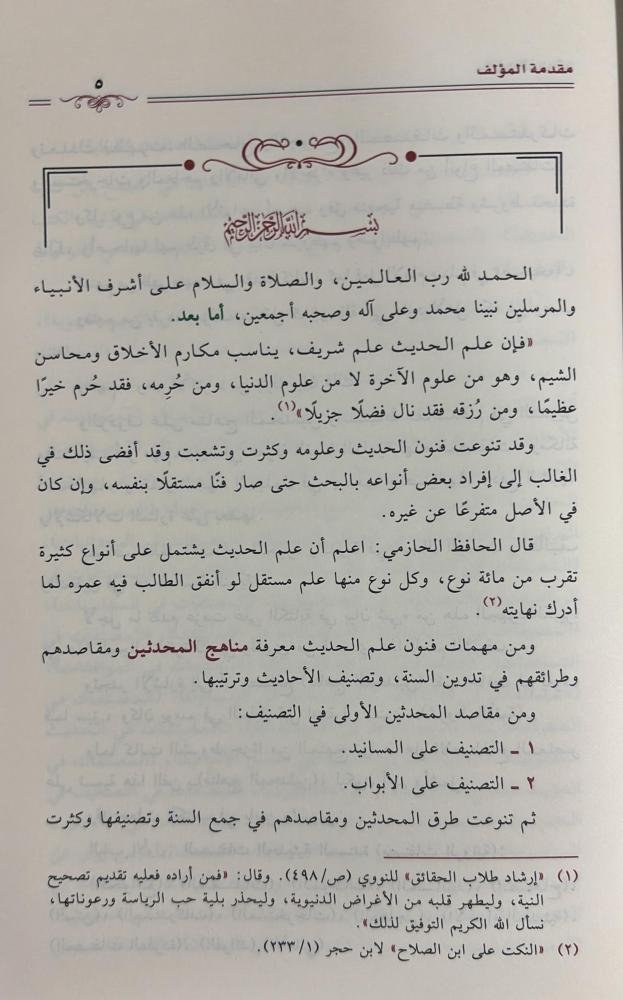 مقدمة المؤلف
٥
بسم الله الرحمن الرحيم
الحمد لله رب العالمين، والصلاة والسلام على أشرف الأنبياء
والمرسلين نبينا محمد وعلى آله وصحبه أجمعين، أما بعد.
«فإن علم الحديث علم شريف، يناسب مكارم الأخلاق ومحاسن
الشيم، وهو من علوم الآخرة لا من علوم الدنيا، ومن حُرِمه، فقد حُرم خيرًا
عظيمًا، ومن رُزقه فقد نال فضلًا جزيلًا»(١).
وقد تنوعت فنون الحديث وعلومه وكثرت وتشعبت وقد أفضى ذلك في
الغالب إلى إفراد بعض أنواعه بالبحث حتى صار فنًا مستقلًا بنفسه، وإن كان
في الأصل متفرعًا عن غيره.
قال الحافظ الحازمي: اعلم أن علم الحديث يشتمل على أنواع كثيرة
تقرب من مائة نوع، وكل نوع منها علم مستقل لو أنفق الطالب فيه عمره لما
أدرك نهايته(٢).
ومن مهمات فنون علم الحديث معرفة مناهج المحدثين ومقاصدهم
وطرائقهم في تدوين السنة، وتصنيف الأحاديث وترتيبها.
ومن مقاصد المحدثين الأولى في التصنيف:
١ ـ التصنيف على المسانيد.
٢ ـ التصنيف على الأبواب.
ثم تنوعت طرق المحدثين ومقاصدهم في جمع السنة وتصنيفها وكثرت
(١) «إرشاد طلاب الحقائق» للنووي (ص/٤٩٨). وقال: «فمن أراده فعليه تقديم تصحيح
النية، وليطهر قلبه من الأغراض الدنيوية، وليحذر بلية حب الرياسة ورعوناتها،
نسأل الله الكريم التوفيق لذلك».
(٢) «النكت على ابن الصلاح» لابن حجر (٢٣٣/١).